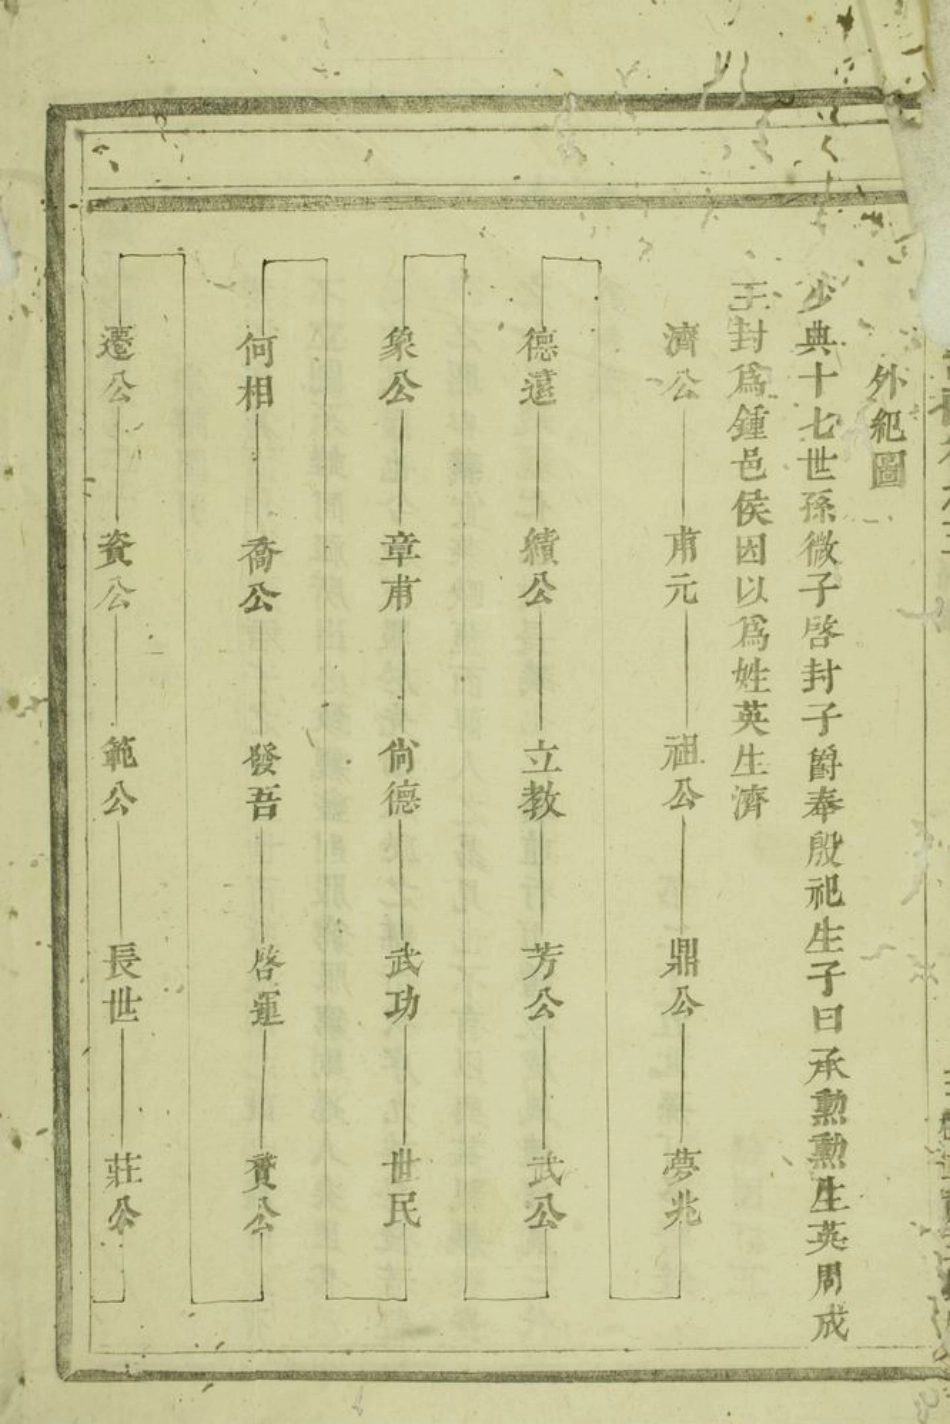 外紀圖
少典十七世孫微子啓封子爵奉殷祀生子曰承勲勲生英周成
王封爲鍾邑侯因以爲姓英生濟
濟公 甫元 祖公 鼎公 夢兆
德遠 績公 立教 芳公 武公
象公 章甫 尙德 武功 世民
何相 喬公 發吾 啓運 賛公
遷公 資公 範公 長世 莊公